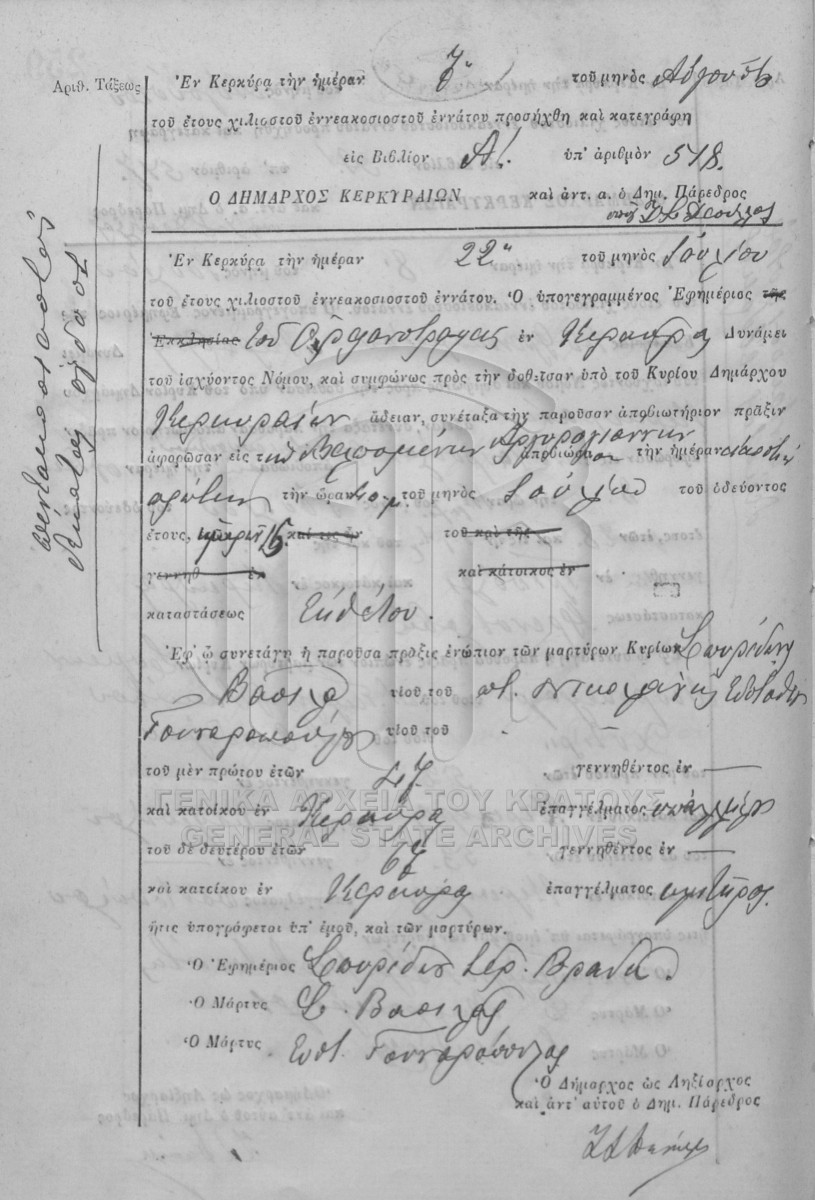 Ἀριθ. Τάξεως
πεντακοσιοστὸς
Ἐν Κερκύρᾳ τὴν ἡμέραν 7 τοῦ μηνὸς Αὐγούστου
τοῦ ἔτους χιλιοστοῦ ἐννεακοσιοστοῦ ἐννάτου προσήχθη καὶ κατεγράφη
εἰς Βιβλίον Α'. ὑπ' ἀριθμὸν 518.
Ο ΔΗΜΑΡΧΟΣ ΚΕΡΚΥΡΑΙΩΝ καὶ ἀντ. α. ὁ Δημ. Πάρεδρος
Ἐν Κερκύρᾳ τὴν ἡμέραν 22α τοῦ μηνὸς Ἰουλίου
τοῦ ἔτους χιλιοστοῦ ἐννεακοσιοστοῦ ἐννάτου. Ὁ ὑπογεγραμμένος Ἐφημέριος τῆς
Ἐκκλησίας τοῦ Ὀρφανοτροφείου ἐν Κερκύρᾳ Δυνάμει
τοῦ ἰσχύοντος Νόμου, καὶ συμφώνως πρὸς τὴν δοθεῖσαν ὑπὸ τοῦ Κυρίου Δημάρχου
Κερκυραίων ἄδειαν, συνέταξα τὴν παροῦσαν ἀποβιωτήριον πρᾶξιν
ἀφορῶσαν εἰς τὴν ἀποβιώσασαν τὴν ἡμέραν εἰκοστὴν
πρώτην τὴν ὥραν τοῦ μηνὸς Ἰουλίου τοῦ ὁδεύοντος
ἔτους, καὶ εἰς ἓν τοῦ καὶ τῆς
γεννηθ ἐν καὶ κάτοικος ἐν
καταστάσεως Ἐκθέτου.
Ἐφ' ᾧ συνετάγη ἡ παροῦσα πρᾶξις ἐνώπιον τῶν μαρτύρων Κυρίων Σπυρίδων
Βασιλᾶ υἱοῦ τοῦ ποτ.
Γουναροπούλου υἱοῦ τοῦ -
τοῦ μὲν πρώτου ἐτῶν 47 γεννηθέντος ἐν —
καὶ κατοίκου ἐν Κερκύρᾳ ἐπαγγέλματος
τοῦ δὲ δευτέρου ἐτῶν 67 γεννηθέντος ἐν —
καὶ κατοίκου ἐν Κερκύρᾳ ἐπαγγέλματος
ἥτις ὑπογράφεται ὑπ' ἐμοῦ, καὶ τῶν μαρτύρων.
Ὁ Ἐφημέριος Σπυρίδων Ἱερ. Βραδῆς.
Ὁ Μάρτυς Σ. Βασιλᾶς
Ὁ Μάρτυς Εὐστ. Γουναρόπουλος
Ὁ Δήμαρχος ὡς Ληξίαρχος
καὶ ἀντ' αὐτοῦ ὁ Δημ. Πάρεδρος
ΓΕΝΙΚΑ ΑΡΧΕΙΑ ΤΟΥ ΚΡΑΤΟΥΣ
GENERAL STATE ARCHIVES